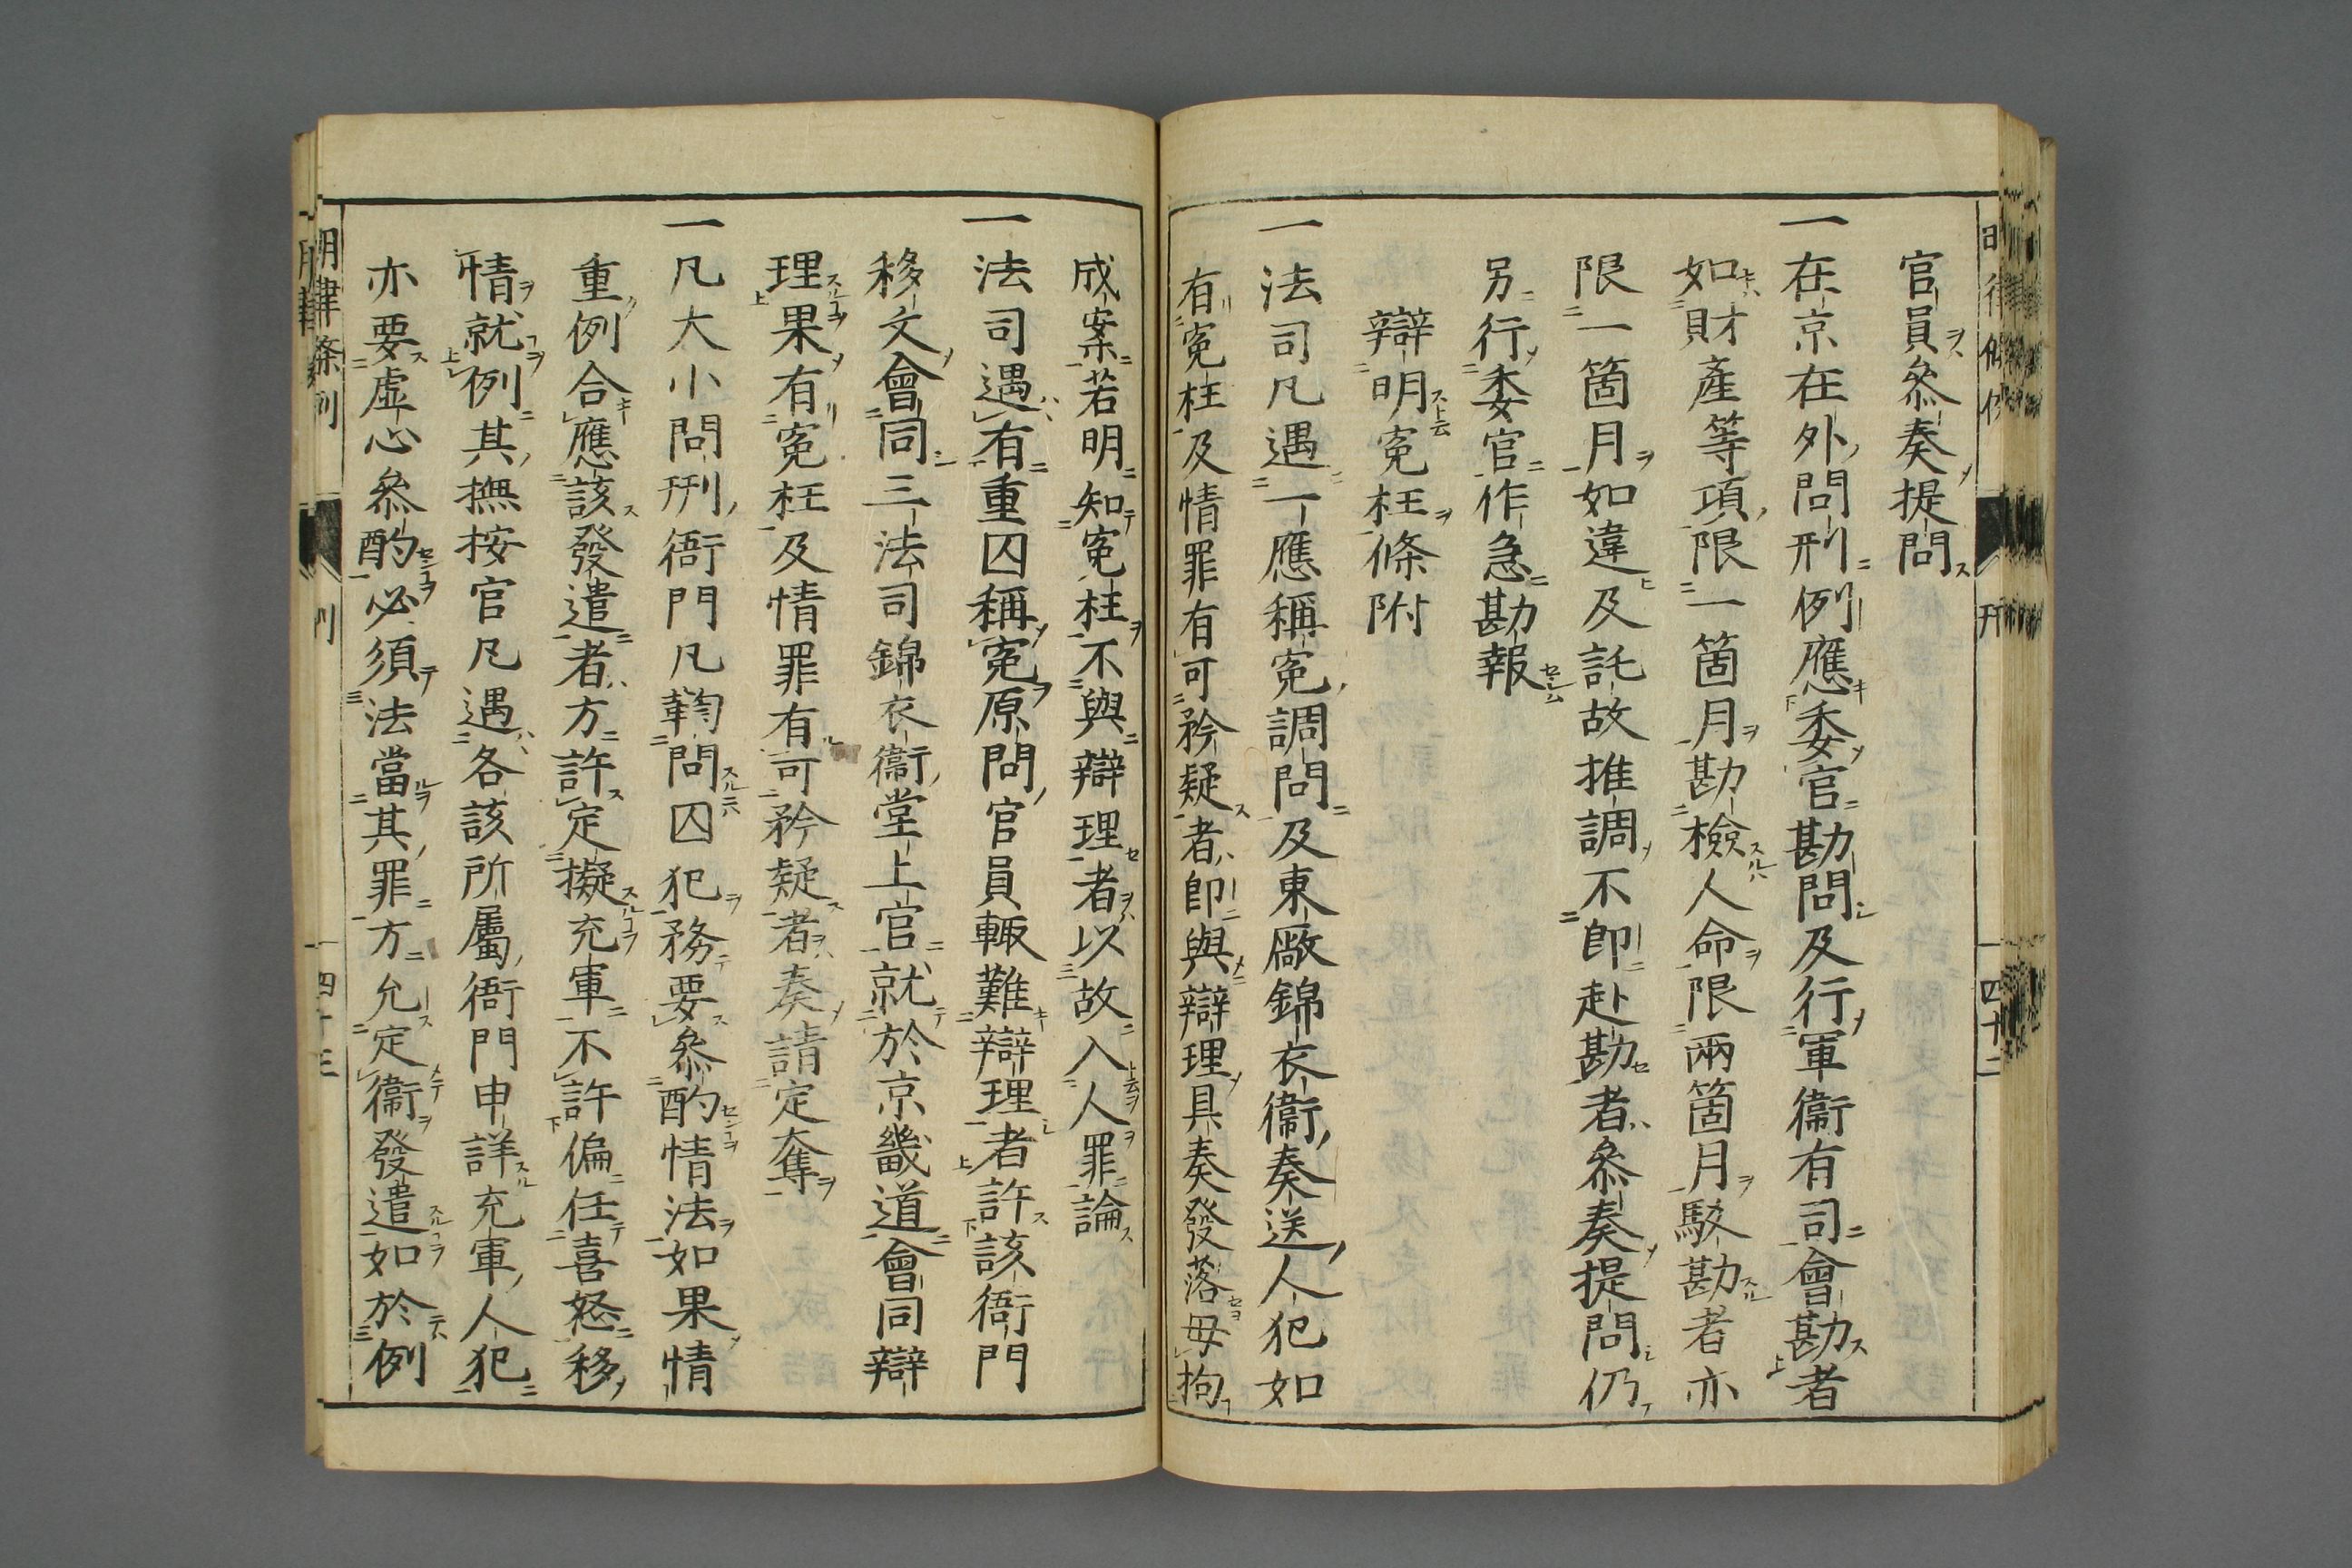 官員參奏提問
一在京在外問刑例應委官勘問及行軍衞有司會勘者
如財產等項限一箇月勘檢人命限兩箇月駁勘者亦
限一箇月如違及託故推調不即赴勘者參奏提問仍
另行委官作急勘報
辯明冤枉條附
一法司凡遇一應稱冤調問及東廠錦衣衞奏送人犯如
有冤枉及情罪有可矜疑者即與辯理具奏發落毋拘
成案若明知冤枉不與辯理者以故入人罪論
一法司遇有重囚稱冤原問官員輙難辯理者許該衙門
移文會同三法司錦衣衞堂上官就於京畿道會同辯
理果有冤枉及情罪有可矜疑者奏請定奪
一凡大小問刑衙門凡鞫問囚犯務要參酌情法如果情
重例合應該發遣者方許定擬充軍不許偏任喜怒移
情就例其撫按官凡遇各該所屬衙門申詳充軍人犯
亦要虛心參酌必須法當其罪方允定衞發遣如於例